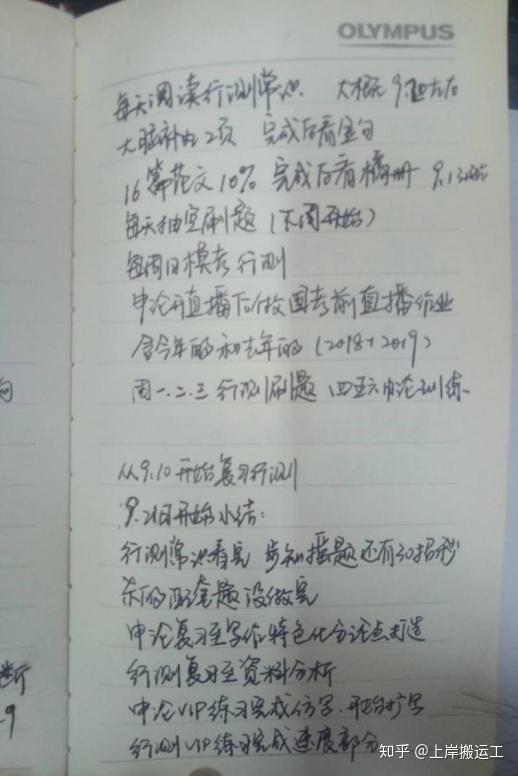 OLYMPUS
每天阅读行测常识 大概9.20左右
大脑补充2页 完成后看金句
16篇范文10% 完成后看橘册 9.13
每天抽空刷题(下周开始)
每周日模考行测
申论开直播后做国考前直播作业
含今年的和去年的(2018+2019)
周一.二.三行测刷题 四五六申论训练
从9.10开始复习行测
9.21日开始小结:
行测常识看完 步知播题还有30招秒
杀的配套题没做完
申论复习至写作特色化分论点打造
行测复习至资料分析
申论VIP练习完成仿写.开始扩写
行测VIP练习完成速度部分
知乎 @上岸搬运工